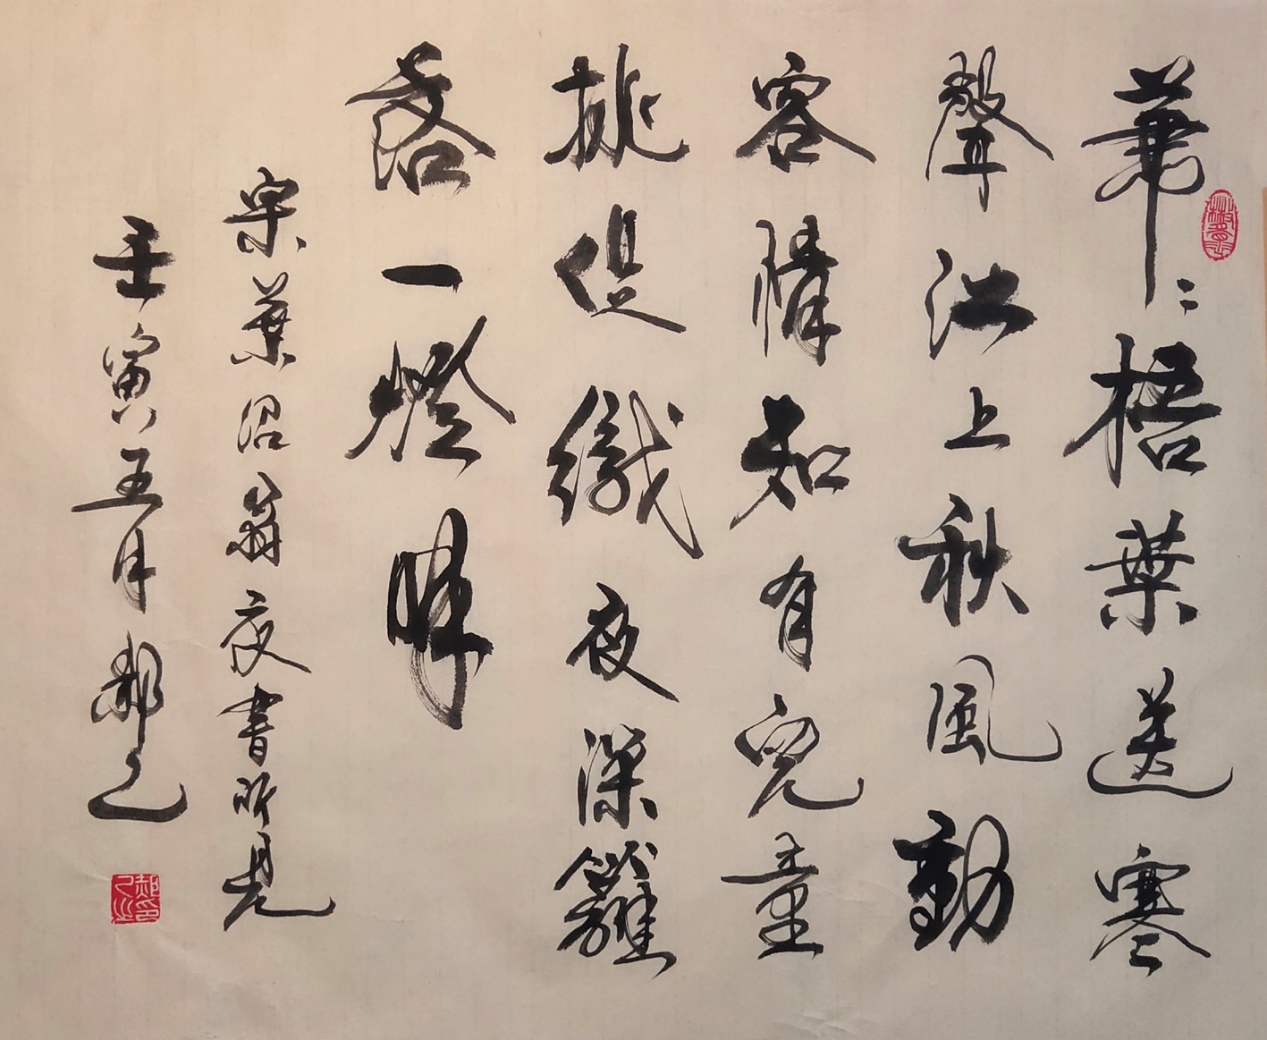 蕭〻梧葉送寒
聲江上秋風動
客情知有兒童
挑促織夜深籬
落一燈明
宋葉紹翁夜書所見
壬寅五月郝